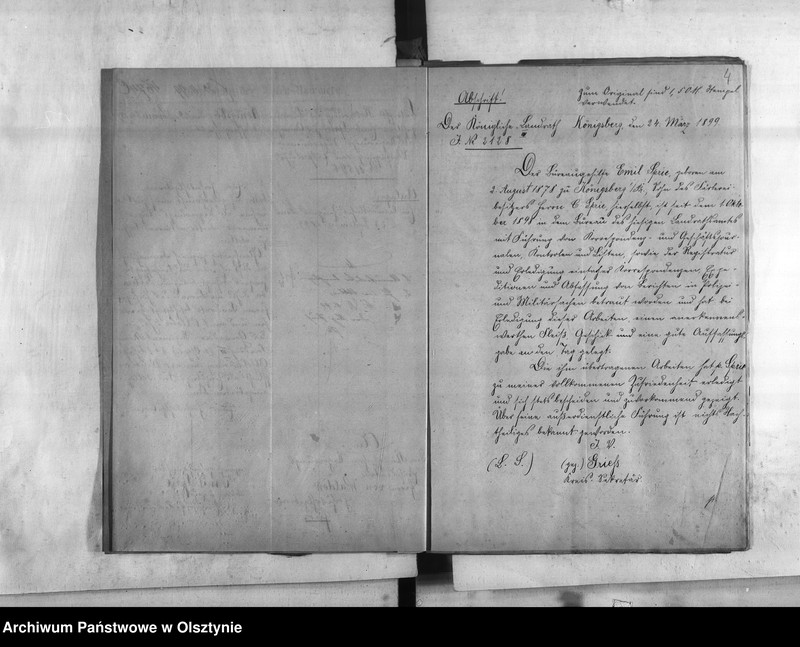 4
Abschrift.
Zum Original sind 1,50 M. Stempel
verwendet.
Der Königliche Landrath Königsberg, den 24. März 1899
J. № 2128
Der Bureaugehilfe Emil Sprie, geboren am
2. August 1878 zu Königsberg i/Pr., Sohn des Färberei-
besitzers Herrn C. Sprie hierselbst, ist seit dem 1 Okto-
ber 1898 in dem Bureau des hiesigen Landrathsamtes
mit Führung von Korrespondenz- und Geschäftsjour-
nalen, Kontrolen und Listen, sowie der Registratur
und Erledigung einfacher Korrespondenzen, Expe-
ditionen und Abfassung von Berichten in Polizei-
und Militärsachen betraut worden und hat bei
Erledigung dieser Arbeiten einen anerkennens-
werthen Fleiß, Geschick und eine gute Auffassungs-
gabe an den Tag gelegt.
Die ihm übertragenen Arbeiten hat p. Sprie
zu meiner vollkommenen Zufriedenheit erledigt
und sich stets bescheiden und zuvorkommend gezeigt.
Über seine außerdienstliche Führung ist nichts Nach-
theiliges bekannt geworden.
J. V.
(L. S.) (gez.) Grieß
Kreis-Sekretär
Archiwum Państwowe w Olsztynie